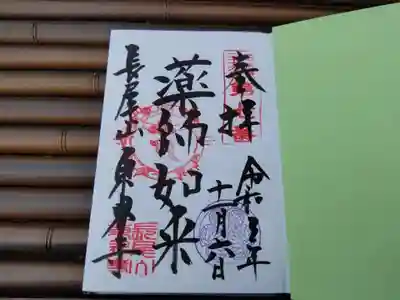 奉拝
令和三年
十一月六日
薬師如来
長尾山